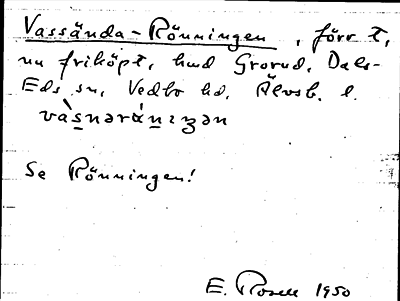 Vassända-Rönningen, förr t.
nu friköpt, hmd Grorud, Dals-
Eds sn, Vedbo hd, Älvsb. l.
Se Rönningen!
E. Rosell 1950